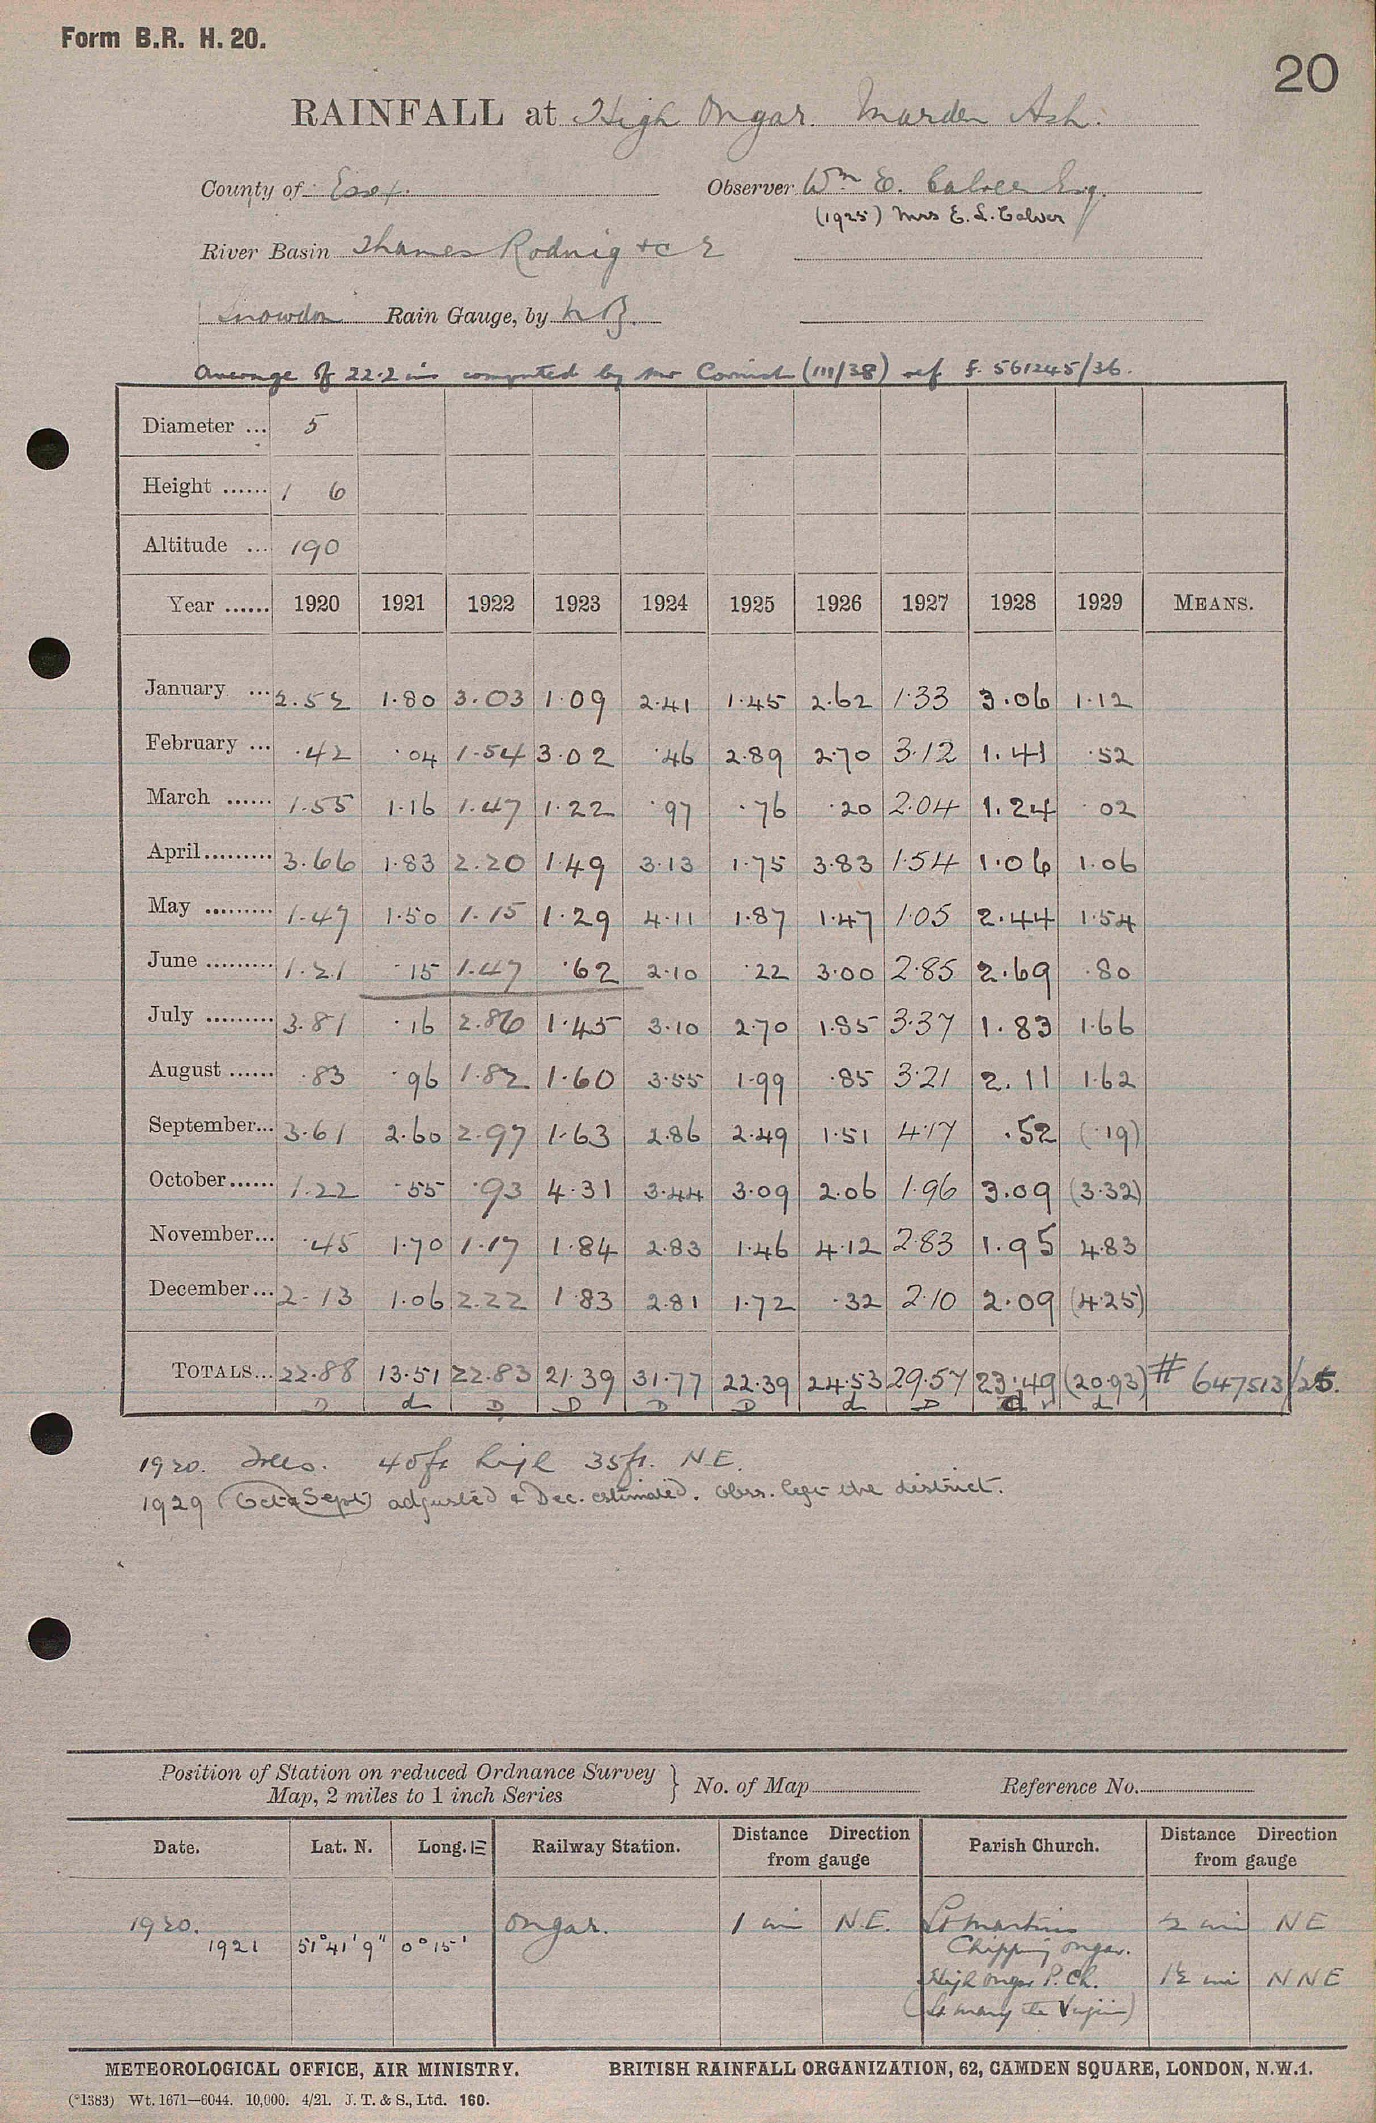 Form B.R. H. 20.
20
RAINFALL at High Ongar. Marden Ash.
County of Essex. Observer Wm E. Calver Esq.
(1925) Mrs E. L. Calver
River Basin Thames Roding &c E
Snowdon Rain Gauge, by N B.
Average of 22.2 ins computed by Mr Cornish (III/38) ref F. 561245/36.
Diameter ... 5
Height ...... 1 6
Altitude ... 190
Year ...... 1920 1921 1922 1923 1924 1925 1926 1927 1928 1929 MEANS.
January ... 2.52 1.80 3.03 1.09 2.41 1.45 2.62 1.33 3.06 1.12
February ... .42 .04 1.54 3.02 .46 2.89 2.70 3.12 1.41 .52
March ...... 1.55 1.16 1.47 1.22 .97 .76 .20 2.04 1.24 .02
April......... 3.66 1.83 2.20 1.49 3.13 1.75 3.83 1.54 1.06 1.06
May ......... 1.47 1.50 1.15 1.29 4.11 1.87 1.47 1.05 2.44 1.54
June ......... 1.21 .15 1.47 .62 2.10 .22 3.00 2.85 2.69 .80
July ......... 3.81 .16 2.86 1.45 3.10 2.70 1.85 3.37 1.83 1.66
August ...... .83 .96 1.82 1.60 3.55 1.99 .85 3.21 2.11 1.62
September... 3.61 2.60 2.97 1.63 2.86 2.49 1.51 4.17 .52 (.19)
October...... 1.22 .55 .93 4.31 3.44 3.09 2.06 1.96 3.09 (3.32)
November... .45 1.70 1.17 1.84 2.83 1.46 4.12 2.83 1.95 4.83
December... 2.13 1.06 2.22 1.83 2.81 1.72 .32 2.10 2.09 (4.25)
TOTALS... 22.88 13.51 22.83 21.39 31.77 22.39 24.53 29.57 23.49 (20.93) # 647513/25.
D d D D D D d D d d
1920. Trees. 40ft high 35ft. N.E.
1929 (Oct & Sept) adjusted & Dec. estimated. Obsr. left the district.
Position of Station on reduced Ordnance Survey
Map, 2 miles to 1 inch Series } No. of Map Reference No.
Date. Lat. N. Long. E Railway Station. Distance Direction from gauge Parish Church. Distance Direction from gauge
1920. Ongar. 1 mi N.E. St Martins ½ mi NE
1921 51°41'9" 0°15' Chipping Ongar.
High Ongar P. Ch. 1½ mi NNE
(St Mary the Virgin)
METEOROLOGICAL OFFICE, AIR MINISTRY. BRITISH RAINFALL ORGANIZATION, 62, CAMDEN SQUARE, LONDON, N.W.1.
(*1383) Wt. 1671—6044. 10,000. 4/21. J. T. & S., Ltd. 160.